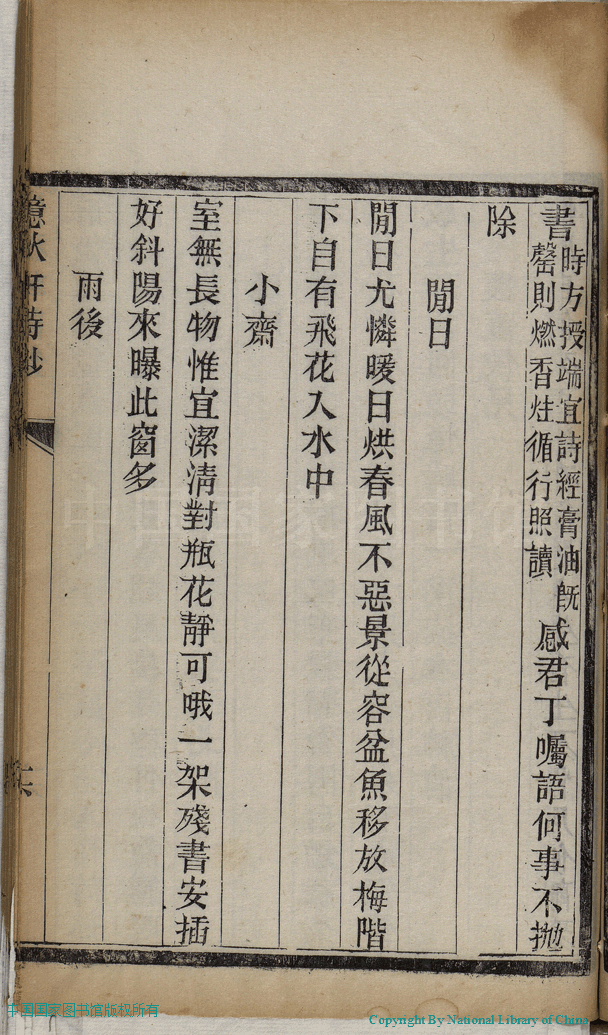 書時方授端宜詩經膏油既罄則燃香炷循行照讀感君丁囑語何事不拋
除
閒日
閒日尤憐暖日烘春風不惡景從容盆魚移放梅階
下自有飛花入水中
小齋
室無長物惟宜潔淸對瓶花靜可哦一架殘書安插
好斜陽來曝此窗多
雨後
憶秋軒詩鈔
六
中国国家图书馆版权所有
Copyright By National Library of China